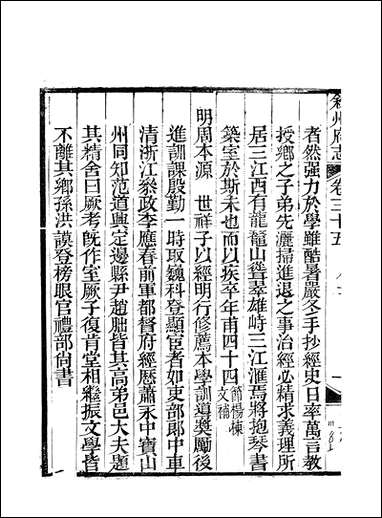 敘州府志 卷三十五
者然强力於學雖酷暑嚴冬手抄經史日率萬言教
授鄉之子弟先灑掃進退之事治經必精求義理所
居三江西有龍山聳翠雄峙三江滙焉將抱琴書
築室於斯未也而以疾卒年甫四十四節楊棟文稿
明周本源 世祥子以經明行修薦本學訓導奬勵後
進訓課殷勤一時取巍科登顯宦者如吏部郎中車
清浙江叅政李應春前軍都督府經歷蕭永中寶山
州同知范道興定邊縣尹趙朏皆其高弟邑大夫題
其精舍曰厥考旣作室厥子復肯堂相繼振文學皆
不離其鄉孫洪謨登榜眼官禮部尙書